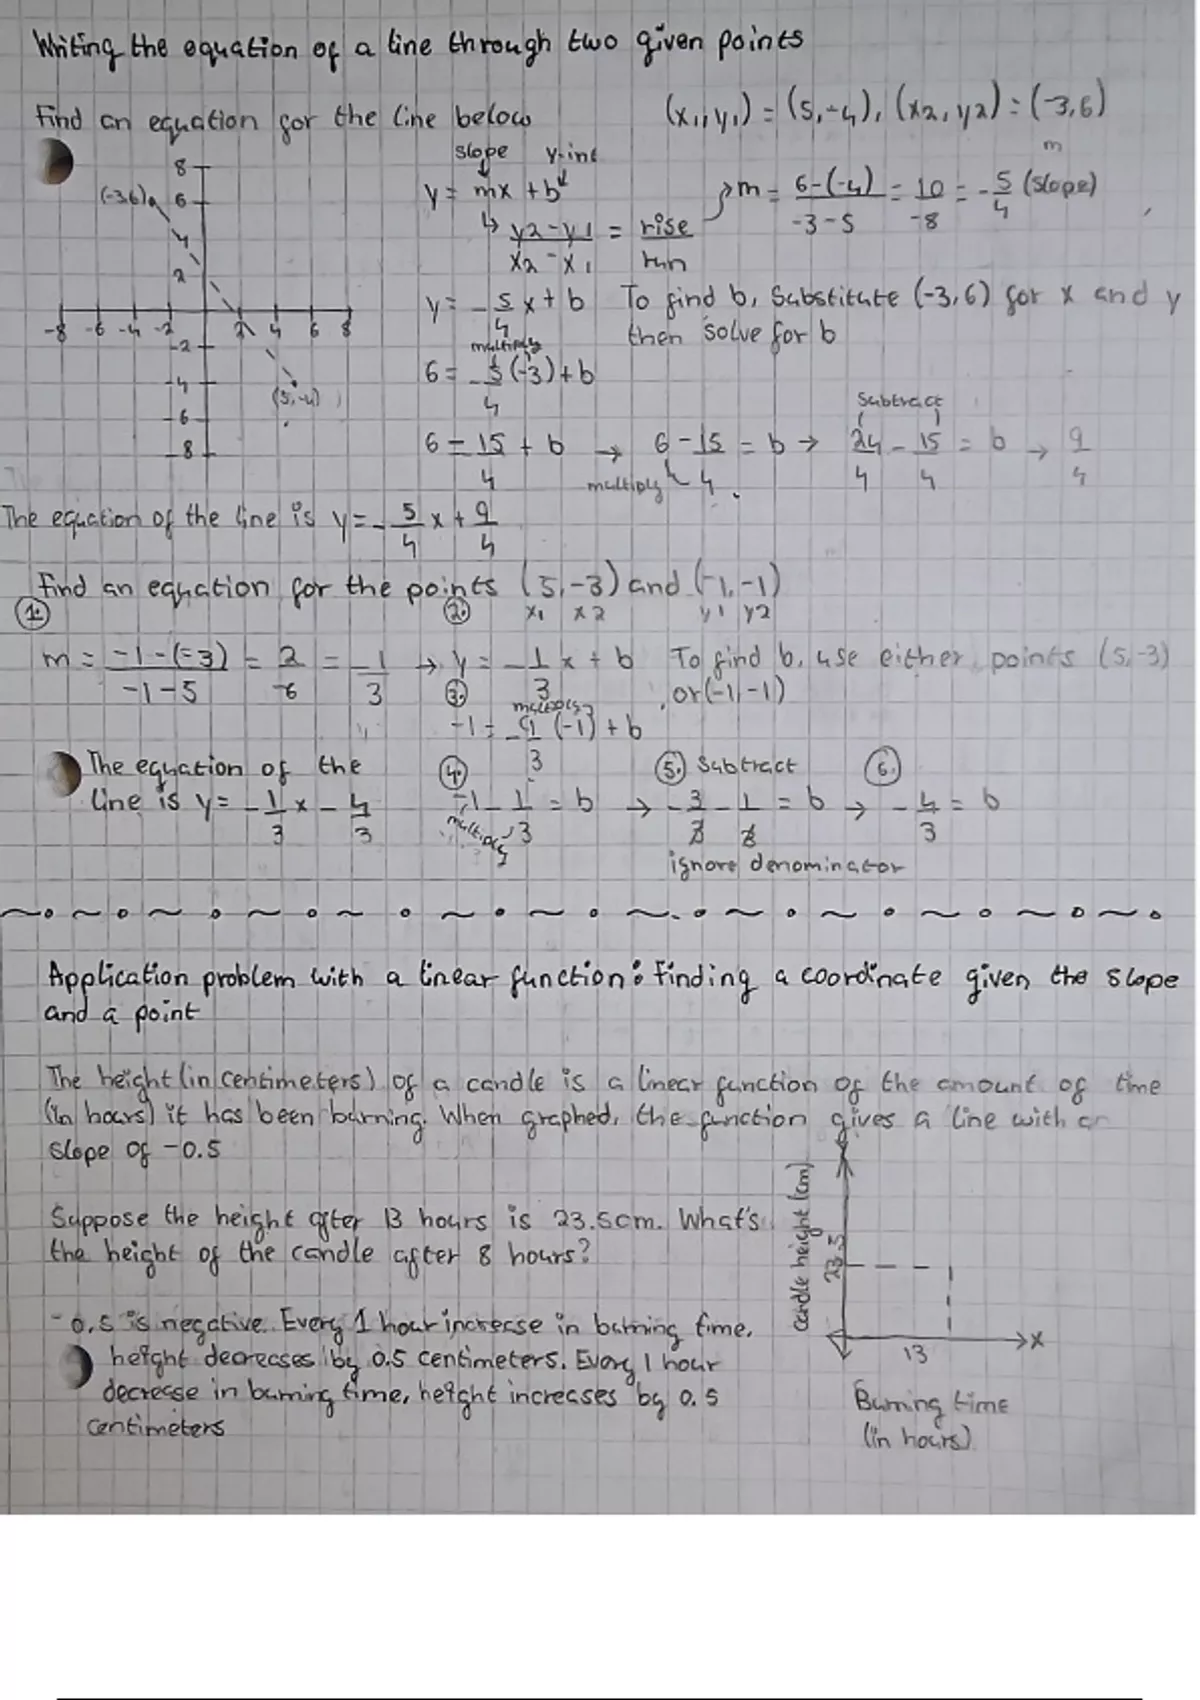 Writing the equation of a line through two given points
Find an equation for the line below
(x1, y1) = (5, -4), (x2, y2) = (-3, 6)
slope y-int
y = mx + b
y2 - y1 / x2 - x1 = rise / run
m
m = 6-(-4) / -3-5 = 10 / -8 = -5/4 (slope)
8
(-3,6) 6
4
2
-8 -6 -4 -2 2 4 6 8
-2
-4
(5,-4)
-6
-8
y = -5/4 x + b To find b, substitute (-3,6) for x and y
then solve for b
multiply
6 = -5/4 (-3) + b
subtract
6 = 15/4 + b → 6 - 15/4 = b → 24/4 - 15/4 = b → 9/4
multiply
The equation of the line is y = -5/4 x + 9/4
Find an equation for the points (5, -3) and (-1, -1)
x1 x2 y1 y2
1. m = -1-(-3) / -1-5 = 2 / -6 = -1/3 → 2. y = -1/3 x + b To find b, use either points (5, -3)
or (-1, -1)
3. multiply
-1 = -1/3 (-1) + b
The equation of the
line is y = -1/3 x - 4/3
4. -1 - 1/3 = b → 5. Subtract -3/3 - 1/3 = b → 6. -4/3 = b
multiply
ignore denominator
Application problem with a linear function: Finding a coordinate given the slope
and a point
The height (in centimeters) of a candle is a linear function of the amount of time
(in hours) it has been burning. When graphed, the function gives a line with an
slope of -0.5
Suppose the height after 13 hours is 23.5cm. What's
the height of the candle after 8 hours?
-0.5 is negative. Every 1 hour increase in burning time,
height decreases by 0.5 centimeters. Every 1 hour
decrease in burning time, height increases by 0.5
centimeters
y
Candle height (cm)
23.5
13
x
Burning time
(in hours)